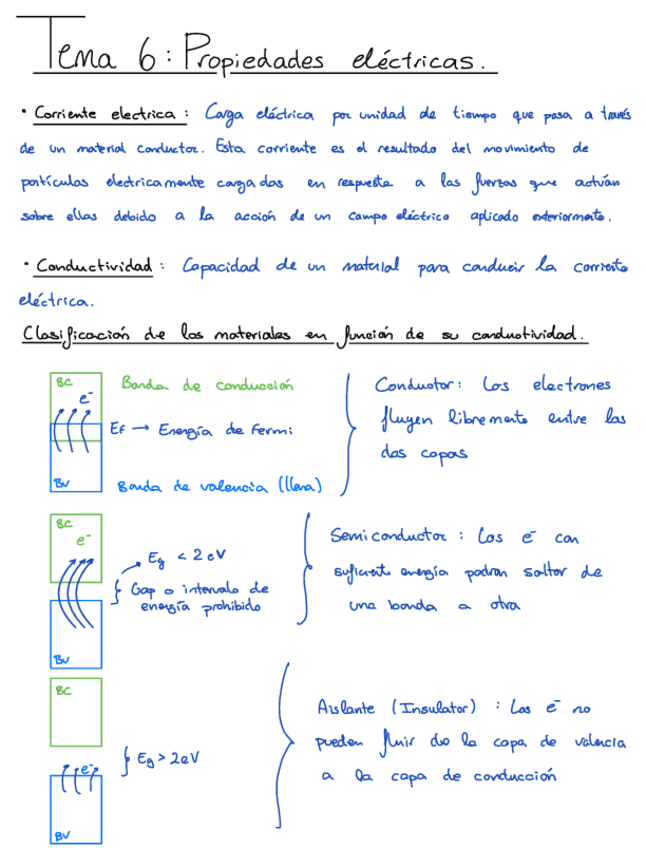 Tema 6: Propiedades eléctricas.
• Corriente electrica: Carga eléctrica por unidad de tiempo que pasa a través
de un material conductor. Esta corriente es el resultado del movimiento de
partículas electricamente cargadas en respuesta a las fuerzas que actúan
sobre ellas debido a la acción de un campo eléctrico aplicado exteriormente.
• Conductividad: Capacidad de un material para conducir la corriente
eléctrica.
Clasificación de los materiales en función de su conductividad.
BC
e⁻
Banda de conducción
EF → Energía de Fermi
BV
Banda de valencia (llena)
Conductor: Los electrones
fluyen libremente entre las
dos capas
BC
e⁻
Eg < 2eV
Gap o intervalo de
energía prohibido
BV
Semiconductor: Los e⁻ con
suficiente energía podran saltar de
una banda a otra
BC
e⁻
Eg > 2eV
BV
Aislante (Insulator): Los e⁻ no
pueden fluir de la capa de valencia
a la capa de conducción